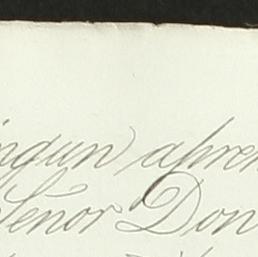 ingun apren
Señor Don